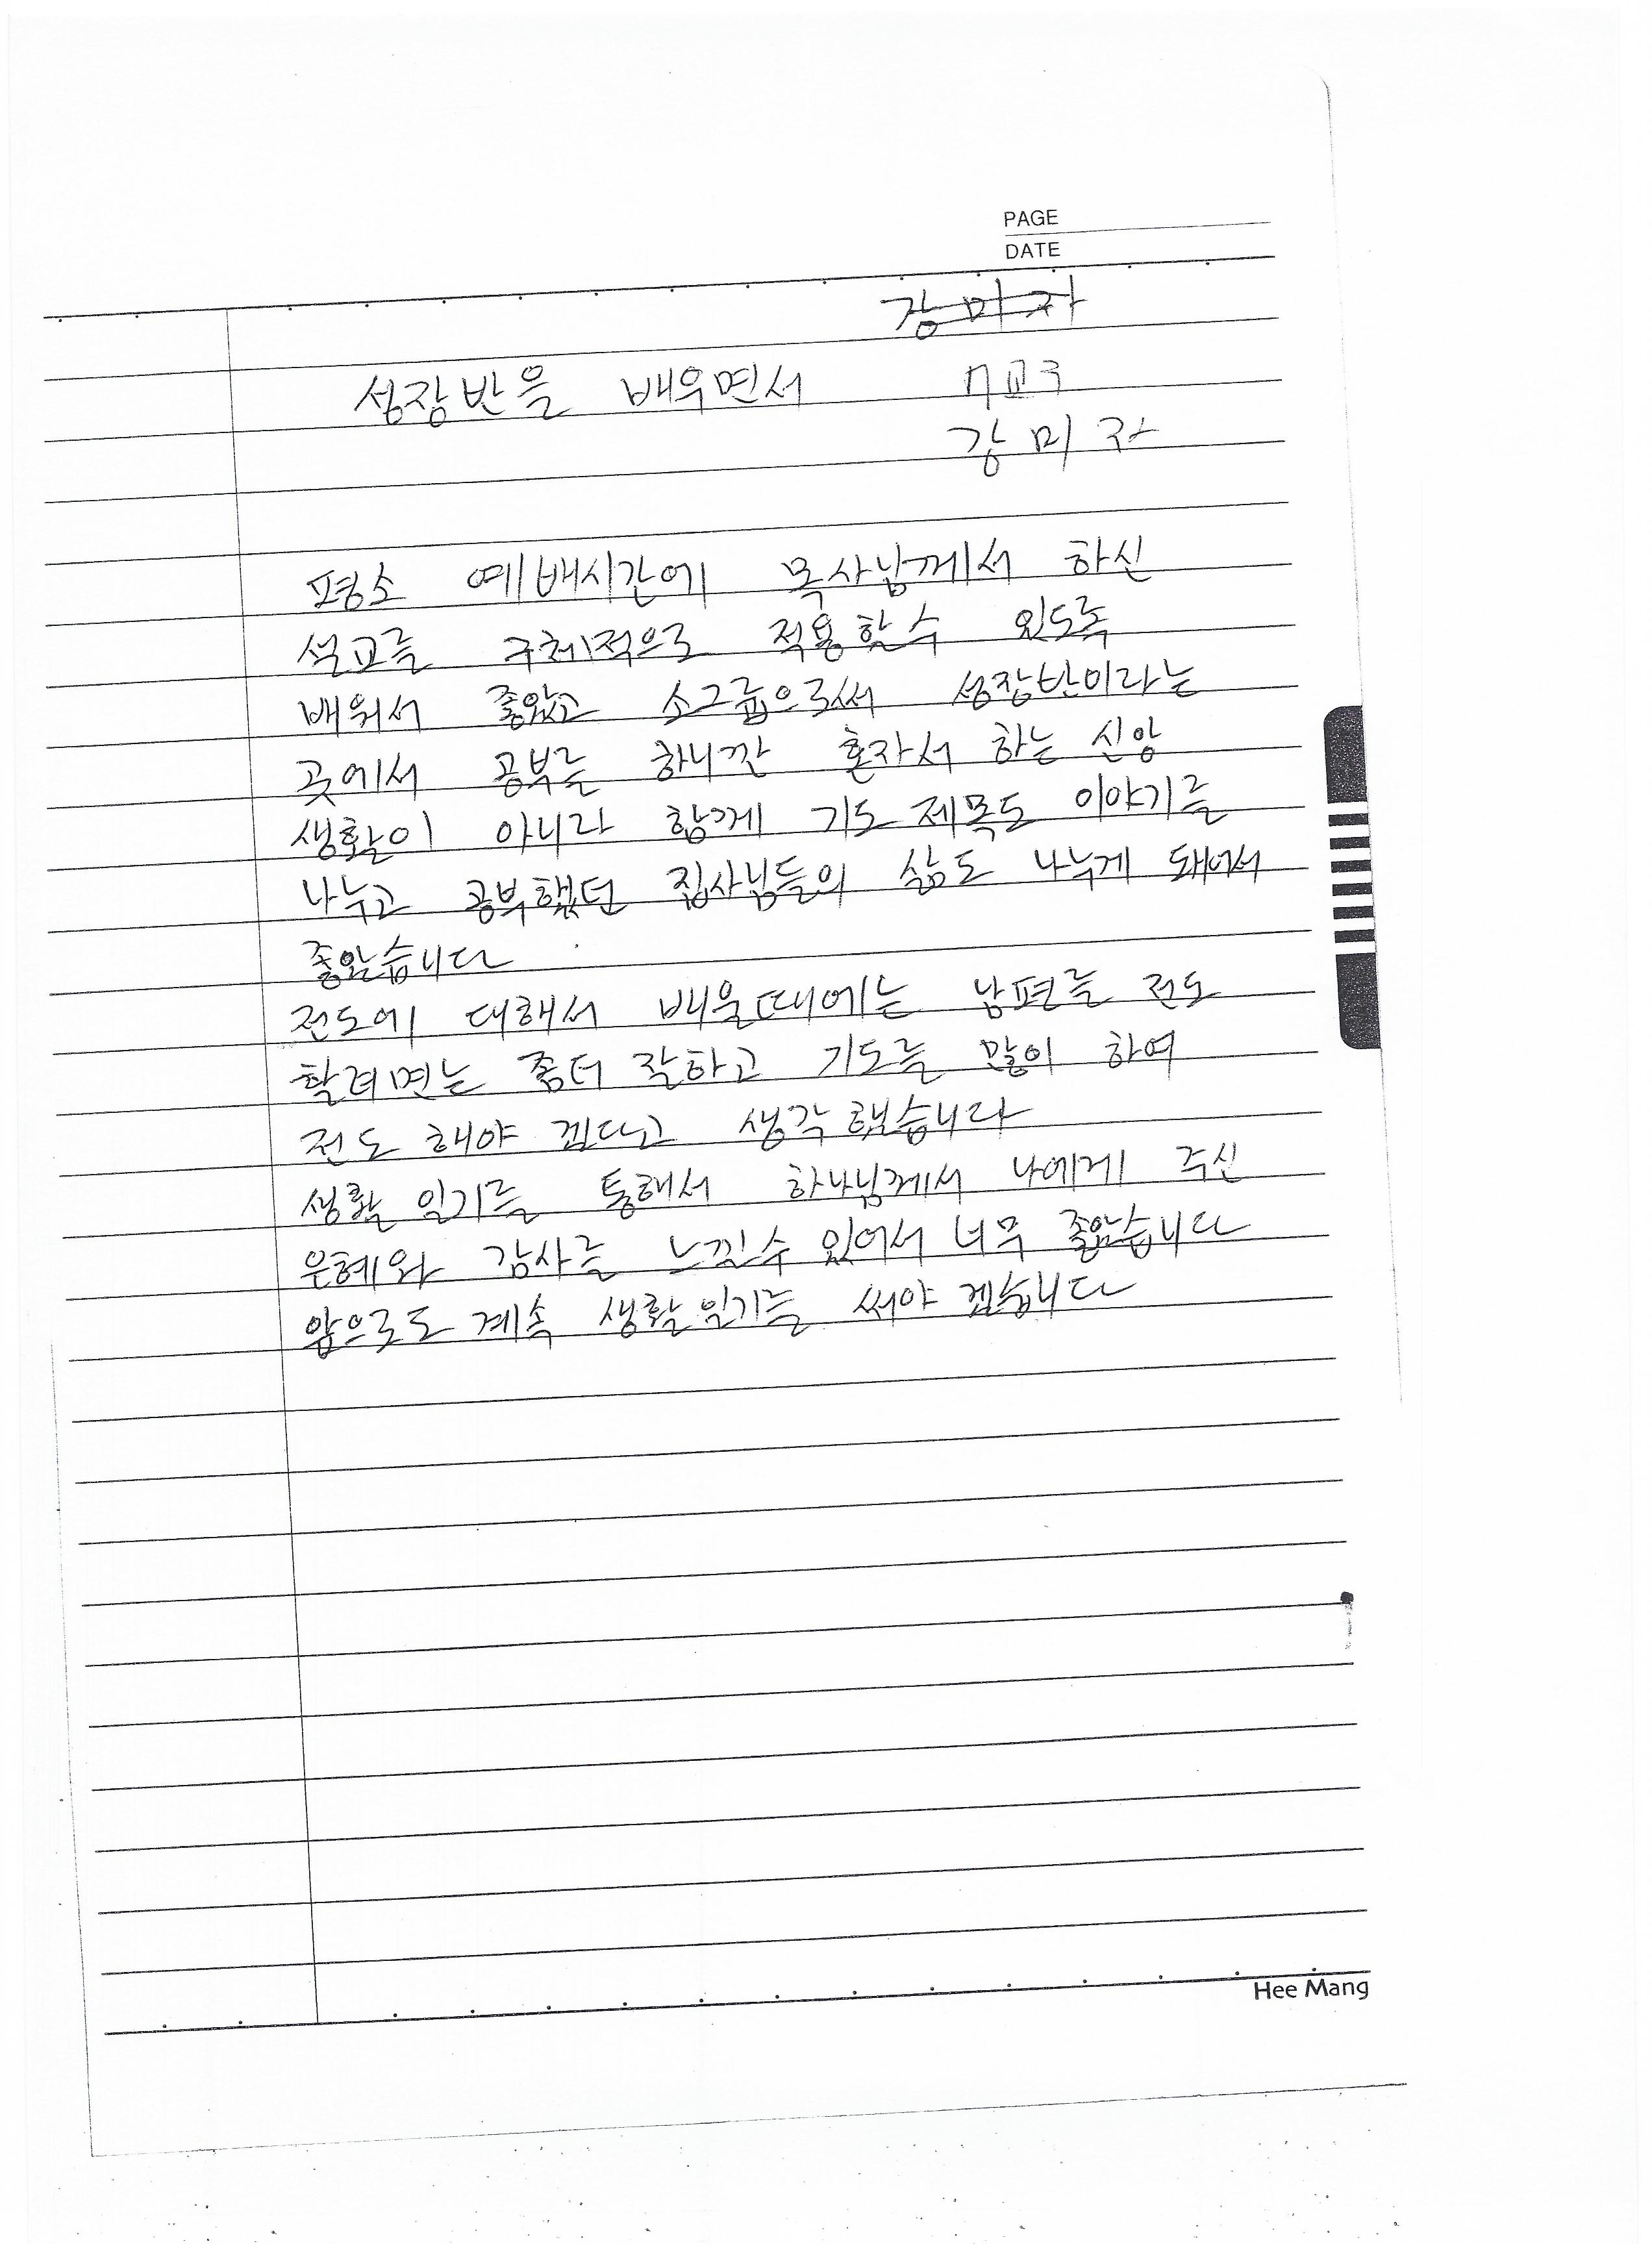 PAGE
DATE
강미자
성장반을 배우면서 7교구
강미자
평소 예배시간에 목사님께서 하신
설교를 구체적으로 적용할수 있도록
배워서 좋았고 소그룹으로써 성장반이라는
곳에서 공부를 하니깐 혼자서 하는 신앙
생활이 아니라 함께 기도 제목도 이야기를
나누고 공부했던 집사님들의 삶도 나누게 돼어서
좋았습니다
전도에 대해서 배울때에는 남편를 전도
할려면는 좀더 잘하고 기도를 많이 하여
전도 해야 겠다고 생각 했습니다
생활 일기를 통해서 하나님께서 나에게 주신
은혜와 감사를 느낄수 있어서 너무 좋았습니다
앞으로도 계속 생활일기를 써야 겠습니다
Hee Mang